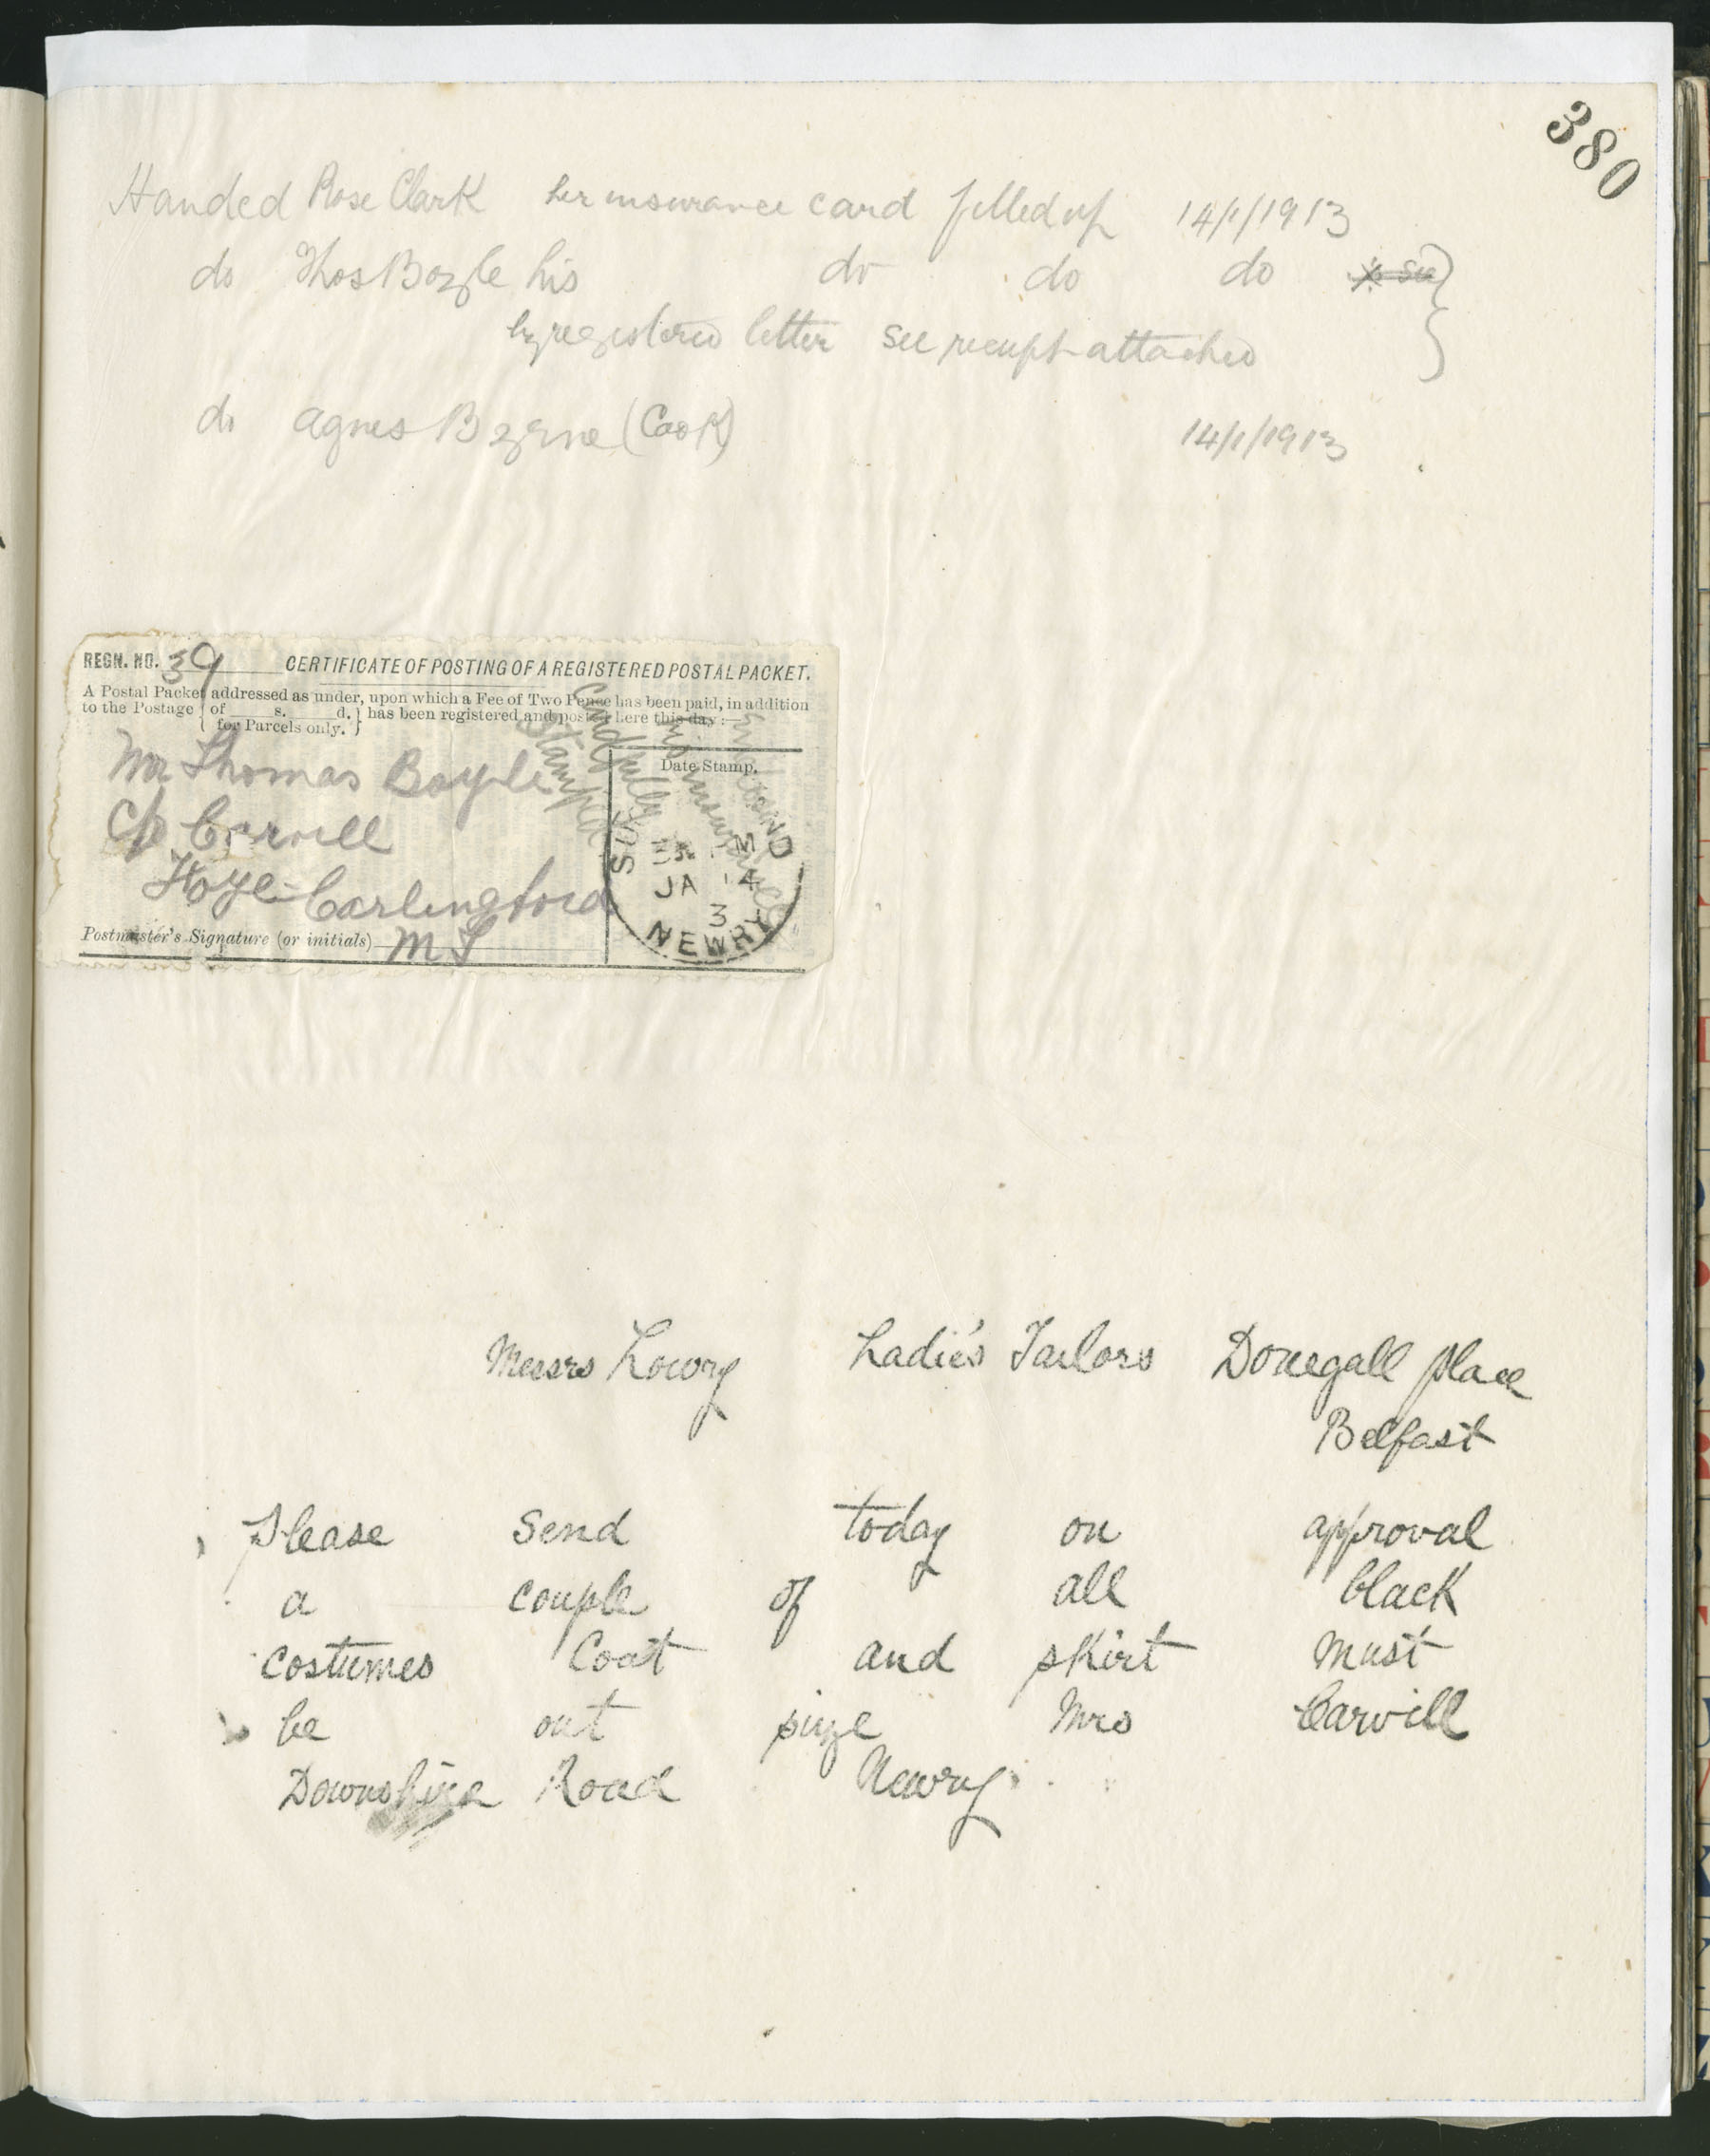 380
Handed Rose Clark her insurance card filled up 14/1/1913
do Thos Boyle his do do do
by registered letter see receipt attached
do Agnes Byrne (Cook) 14/1/1913
REGN. NO. 39 CERTIFICATE OF POSTING OF A REGISTERED POSTAL PACKET.
A Postal Packet addressed as under, upon which a Fee of Two Pence has been paid, in addition
to the Postage { of s. d. } has been registered and posted here this day :—
for Parcels only.
Date Stamp.
Mr Thomas Boyle
c/o Carvill
Carlingford
Postmaster's Signature (or initials)
his insurance
Card fully
stamped
JA 14
3
NEWRY
Messrs Lowry Ladie's Tailors Donegall place
Belfast
Please send today on approval
a couple of all black
costumes Coat and skirt must
be out size Mrs Carvill
Downshire Road Newry